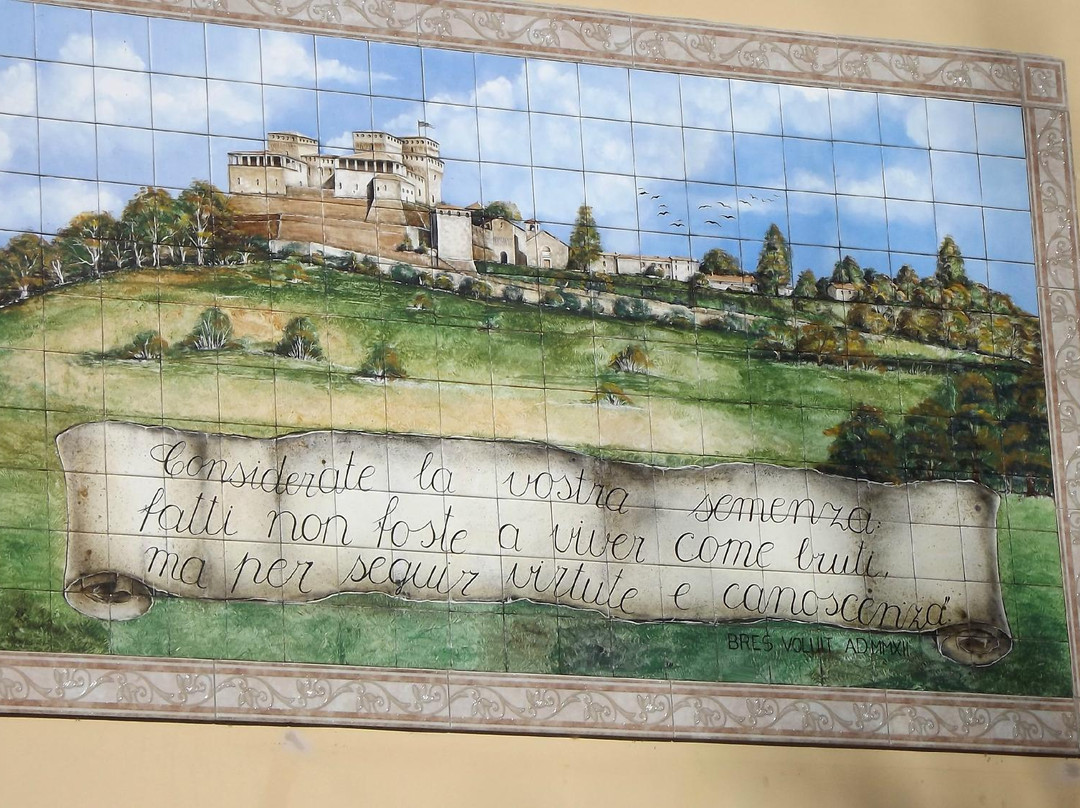 Considerate la vostra semenza:
fatti non foste a viver come bruti,
ma per seguir virtute e canoscenza".
BRES VOLUIT AD MMXII